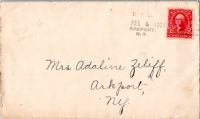 FEB 6
ARKPORT,
N.Y.
Mrs Adaline Zeliff,
Arkport,
Ny.